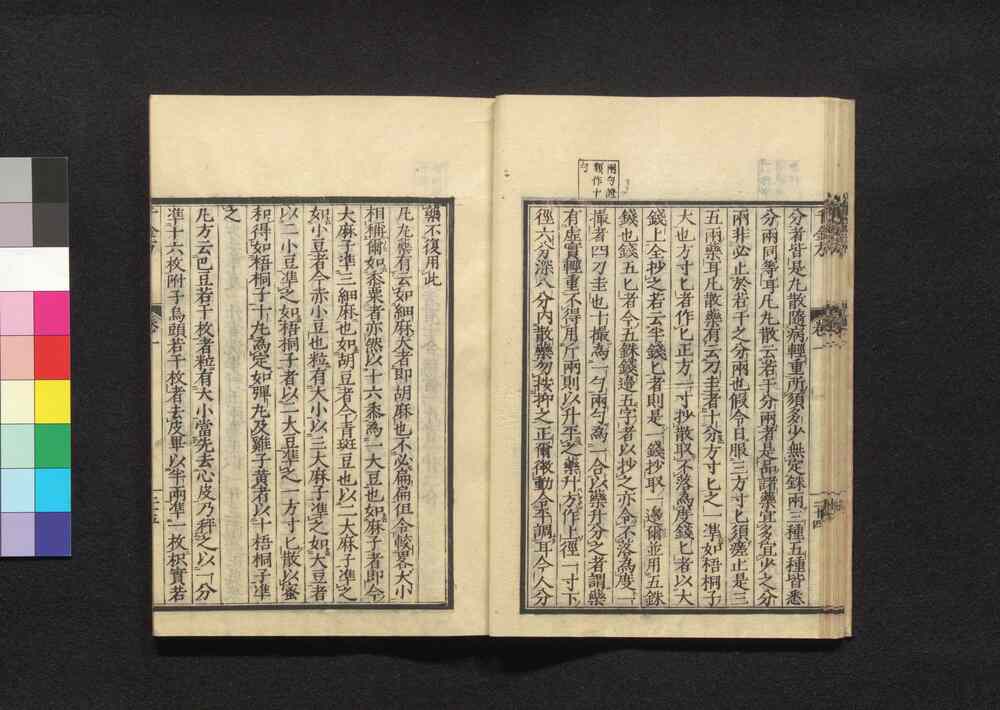 兩勺證
類作十
勺
分者皆是丸散隨病輕重所須多少無定銖兩三種五種皆悉
分兩同等耳凡丸散云若干分兩者是品諸藥宜多宜少之分
兩非必止於若干之分兩也假令日服三方寸匕須瘥止是三
五兩藥耳凡散藥有云刀圭者十分方寸匕之一準如梧桐子
大也方寸匕者作匕正方一寸抄散取不落為度錢匕者以大
錢上全抄之若云半錢匕者則是一錢抄取一邊爾並用五銖
錢也錢五匕者今五銖錢邊五字者以抄之亦令不落為度一
撮者四刀圭也十撮為一勺兩勺為一合以藥升分之者謂藥
有虛實輕重不得用斤兩則以升平之藥升方作上徑一寸下
徑六分深八分內散藥勿按抑之正爾微動令平調耳今人分
藥不復用此
凡丸藥有云如細麻大者即胡麻也不必扁扁但令較略大小
相稱爾如黍粟者亦然以十六黍為一大豆也如麻子者即今
大麻子準三細麻也如胡豆者今青斑豆也以二大麻子準之
如小豆者今赤小豆也粒有大小以三大麻子準之如大豆者
以二小豆準之如梧桐子者以二大豆準之一方寸匕散以蜜
和得如梧桐子十丸為定如彈丸及雞子黃者以十梧桐子準
之
凡方云巴豆若干枚者粒有大小當先去心皮乃秤之以一分
準十六枚附子烏頭若干枚者去皮畢以半兩準一枚枳實若